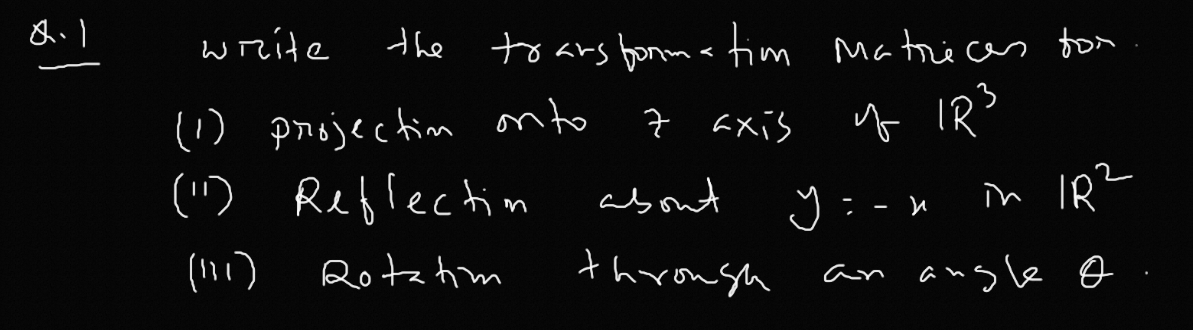 Q.1 Write the transformation matrices for.
(i) projection onto z axis of ℝ³
(ii) Reflection about y = -x in ℝ²
(iii) Rotation through an angle θ.